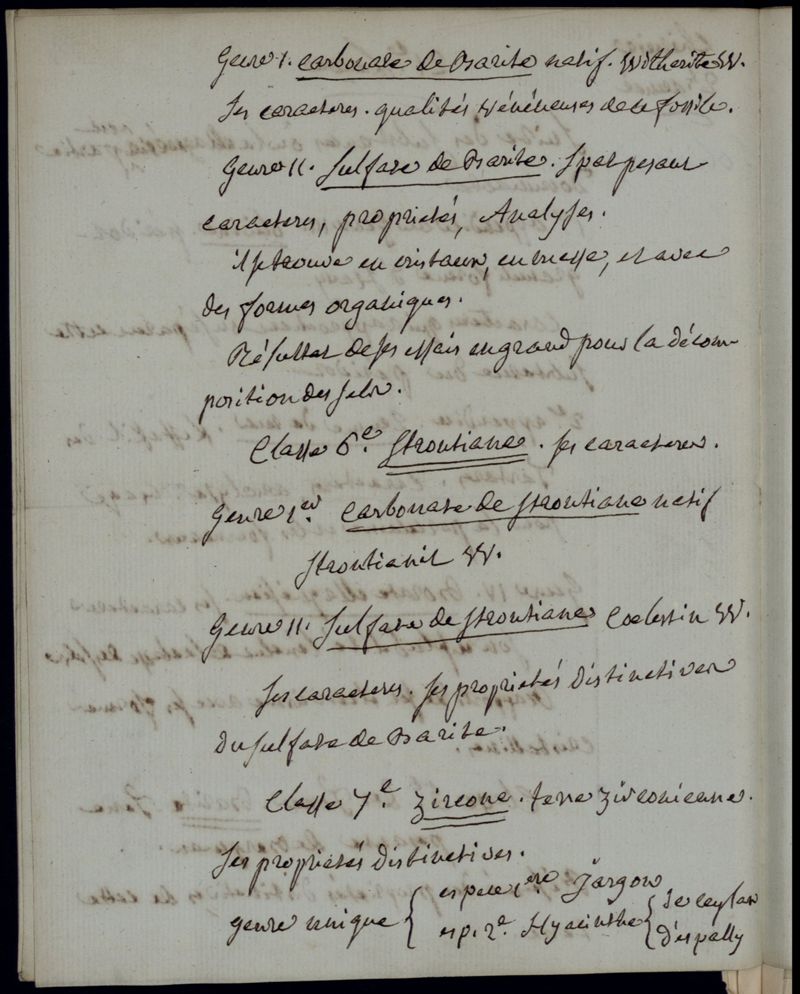 Genre I. carbonate de Barite natif. Witherite W.
Ses caracteres. qualités vénéneuses de ce fossile.
Genre II. Sulfate de Barite. Spat pesant
caracteres, proprietés, Analyses.
il se trouve en cristaux, en masse, et avec
des formes organiques.
Résultat de ses essais en grand pour la décom-
position des sels.
Classe 6e. Strontiane. ses caracteres.
Genre 1er. Carbonate de strontiane natif
Strontianit W.
Genre II. Sulfate de strontiane Coelestin W.
Ses caracteres. ses proprietés distinctives
du sulfate de Barite.
Classe 7e. Zircone. terre zirconienne.
Ses proprietés distinctives.
genre unique { espece 1ere Jargon
esp. 2e. Hyacinthe { de ceylan
d'expally